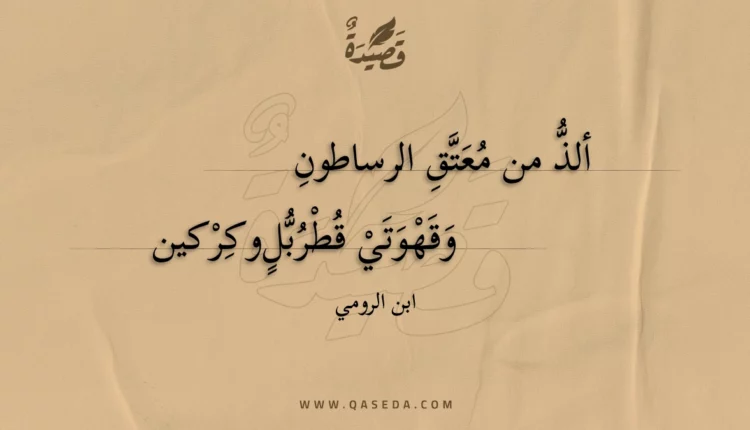 قَصِيْدَةٌ
ألذُّ من مُعَتَّقِ الرساطونِ
وَقَهْوَتَيْ قُطْرُبُّلٍ وكِرْكين
ابن الرومي
WWW.QASEDA.COM